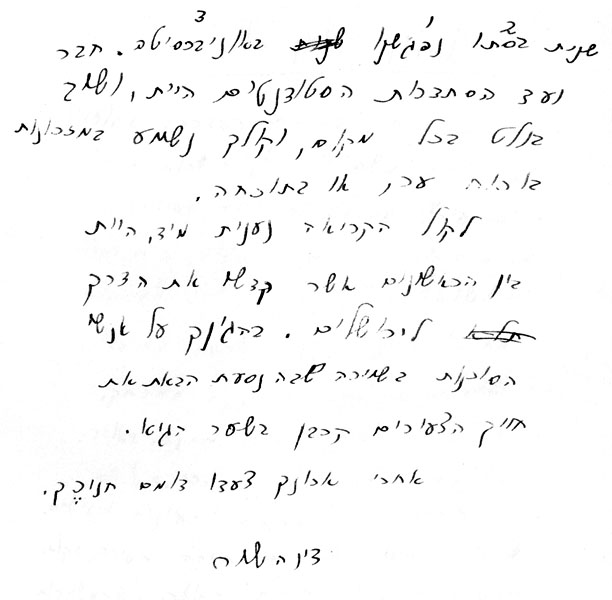 שנית בסתו נפגשנו באוניברסיטה. חבר
ועד הסתדרות הסטודנטים היית, ושמך
בולט בכל מקום, וקולך נשמע במזכרונות
או בתוכחה.
לקול הקריאה נענית מיד, היית
בין הראשונים אשר קדשו את הדרך
לירושלים. בהגינך על אנשי
הסוכנות בשמירה שבה נסעת הבאת את
חייך הצעירים קרבן בשער הגיא.
אחרי ארונך צעדו דומם חניכיך.
דינה שמח